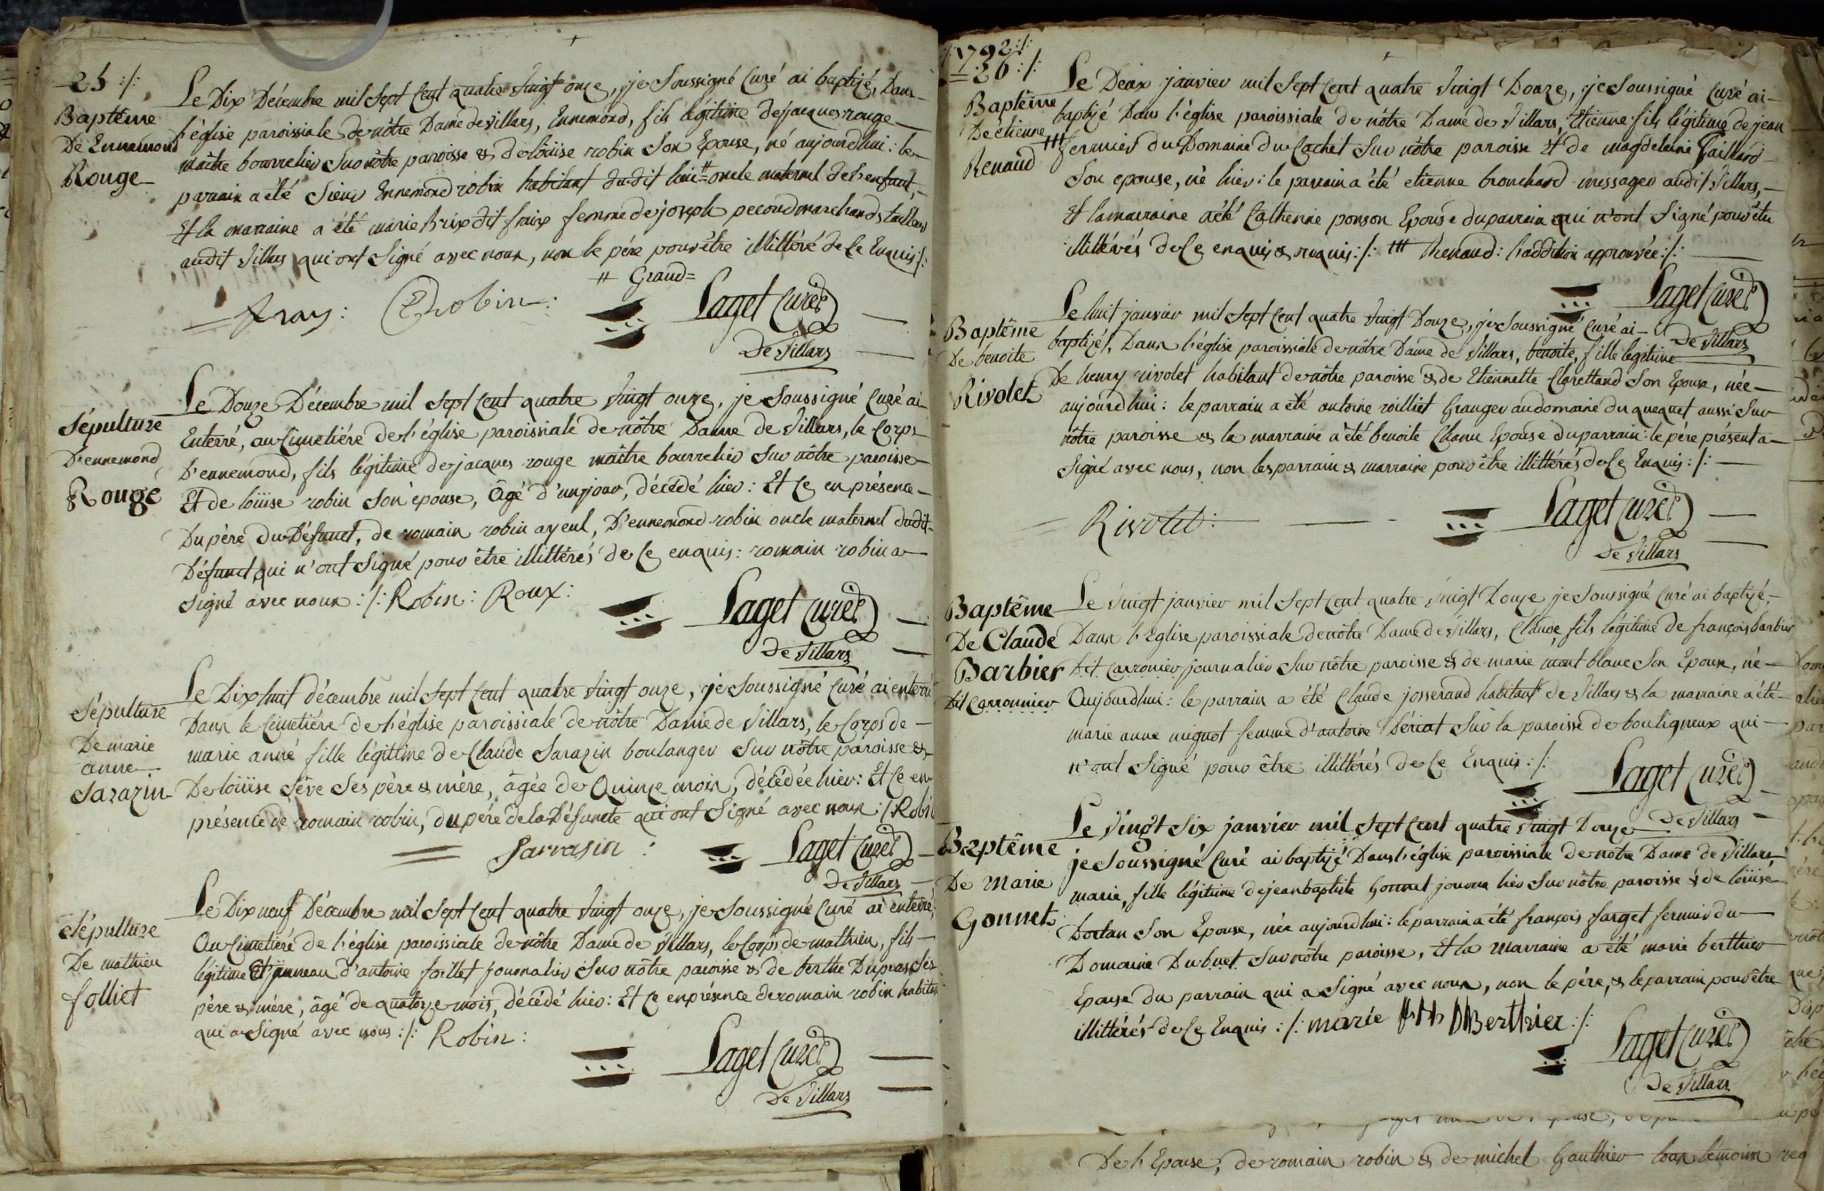 25 :/:
Baptême
De Ennemond
Rouge
Le Dix Décembre mil Sept Cent quatre vingt onze, je Soussigné Curé ai baptizé, Dans
l'église paroissiale de nôtre Dame de villars, Ennemond, fils légitime de jacques rouge
maître bourrelier Sur nôtre paroisse & de loüise robin Son Epouse, né aujourd'hui : le
parrain a été Sieur Ennemond robin habitant dudit lieu ⧺ oncle maternel de l'enfant,
Et la marraine a été marie femme de joseph pecoud marchand tailleur
audit villars qui ont Signé avec nous, non le père pour être illittéré de Ce Enquis :/:
⧺ Grand =
fray : Robin :
Laget Curé
De Villars
Sépulture
D'ennemond
Rouge
Le Douze Décembre mil Sept Cent quatre vingt onze, je Soussigné Curé ai
Enterré, au Cimetiére de l'église paroissiale de nôtre Dame de Villars, le Corps
D'ennemond, fils légitime de jacques rouge maître bourrelier Sur nôtre paroisse
Et de loüise robin Son épouse, âgé d'un jour, décédé hier : Et Ce en présence
Du père du Défunct, de romain robin ayeul, D'ennemond robin oncle maternel dudit
Défunct qui n'ont Signé pour être illittérés de Ce enquis : romain robin a
Signé avec nous :/: Robin : Roux :
Laget Curé
De Villars
Sépulture
De marie
anne
Sarazin
Le Dix huit décembre mil Sept Cent quatre vingt onze, je Soussigné Curé ai enterré
Dans le Cimetiére de l'église paroissiale de nôtre Dame de Villars, le Corps de
marie anne fille légitime de Claude Sarazin boulanger Sur nôtre paroisse &
De loüise Séve Ses père & mére, âgée de Quinze mois, décédée hier : Et Ce en
présence de romain robin, du père de la Défuncte qui ont Signé avec nous :/: Robin
Sarrasin :
Laget Curé
De Villars
Sépulture
De mathieu
folliet
Le Dix neuf Décembre mil Sept Cent quatre vingt onze, je Soussigné Curé ai enterré,
Au Cimetiére de l'église paroissiale de nôtre Dame de Villars, le Corps de mathieu, fils
légitime Et jumeau d'antoine folliet journalier Sur nôtre paroisse & de berthe Dupras Ses
père & mére, âgé de quatorze mois, décédé hier : Et Ce en présence de romain robin habitant
qui a Signé avec nous :/: Robin :
Laget Curé
De Villars
1792 :/:
26 :/:
Baptême
De etienne
Renaud
Le Deux janvier mil Sept Cent quatre vingt Douze, je Soussigné Curé ai
baptizé Dans l'église paroissiale de nôtre Dame de Villars Etienne fils légitime de jean
fermier du Domaine du Cachet Sur nôtre paroisse Et de magdeleine Gaillard
Son epouse, né hier : le parrain a été etienne bronchard messager audit Villars,
Et la marraine a été Catherine ponson Epouse du parrain qui n'ont Signé pour être
illittérés de Ce enquis & requis :/: Renaud : l'addition approuvée :/:
Laget Curé
De Villars
Baptême
De benoite
Rivolet
Le huit janvier mil Sept Cent quatre vingt Douze, je Soussigné Curé ai
baptizé, Dans l'église paroissiale de nôtre Dame de Villars, benoite, fille légitime
De henry rivolet habitant de nôtre paroisse & de Etiennette Clarettand Son Epouse, née
aujourd'hui : le parrain a été antoine roilliet Granger au domaine du quequet aussi Sur
nôtre paroisse & la marraine a été benoite Chanu Epouse du parrain : le père présent a
Signé avec nous, non les parrain & marraine pour être illittérés de Ce Enquis :/:
Rivolet :
Laget Curé
De Villars
Baptême
De Claude
Barbier
Dit Carronnier
Le vingt janvier mil Sept Cent quatre vingt Douze je Soussigné Curé ai baptizé
Dans l'Eglise paroissiale de nôtre Dame de Villars, Claude, fils légitime de françois barbier
dit Carronier journalier Sur nôtre paroisse & de marie mont blanc Son Epouse, né
Aujourd'hui : le parrain a été Claude josserand habitant de Villars & la marraine a été
marie anne mignot femme d'antoine Sériat Sur la paroisse de bouligneux qui
n'ont Signé pour être illittérés de Ce Enquis :/:
Laget Curé
De Villars
Baptême
De Marie
Gonnet
Le vingt Six janvier mil Sept Cent quatre vingt Douze
je Soussigné Curé ai baptizé Dans l'église paroissiale de nôtre Dame de Villars,
marie, fille légitime de jean baptiste Gonnet journalier Sur nôtre paroisse & de loüise
Dortan Son Epouse, née aujourd'hui : le parrain a été françois farget fermier du
Domaine Du buet Sur nôtre paroisse, Et la marraine a été marie berthier
Epouse du parrain qui a Signé avec nous, non le père, & le parrain pour être
illittérés de Ce Enquis :/: marie Berthier :/:
Laget Curé
De Villars
De l'Epouse, de romain robin & de michel Gauthier tous témoins req